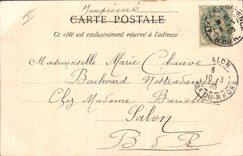 Imprimé
CARTE POSTALE
Ce côté est exclusivement réservé à l'adresse
Mademoiselle Marie Chauve
Boulevard Nostradamus
Chez Madame
Salon
B d R
SALON
10
DU-RHÔNE